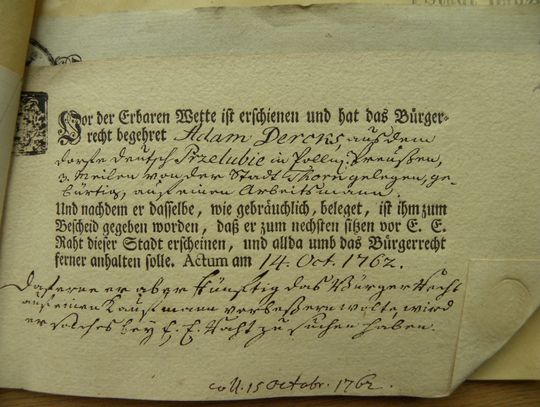 Vor der Erbaren Wette ist erschienen und hat das Bürger-
recht begehret Adam Dercks, aus dem
dorfe deutsch Przelubie in Polln: Preußen,
3. Meilen von der Stadt Thorn gelegen, ge-
bürtig, auf einen Arbeitsmann.
Und nachdem er dasselbe, wie gebräuchlich, beleget, ist ihm zum
Bescheid gegeben worden, daß er zum nechsten sitzen vor E. E.
Raht dieser Stadt erscheinen, und allda umb das Bürgerrecht
ferner anhalten solle. Actum am 14. Oct. 1762.
daferne er aber künftig das Bürger Recht
auf einen Kaufmann verbeßern wolte, wird
er solches bey E. E. Raht zu suchen haben.
coll. 15 Octobr. 1762.